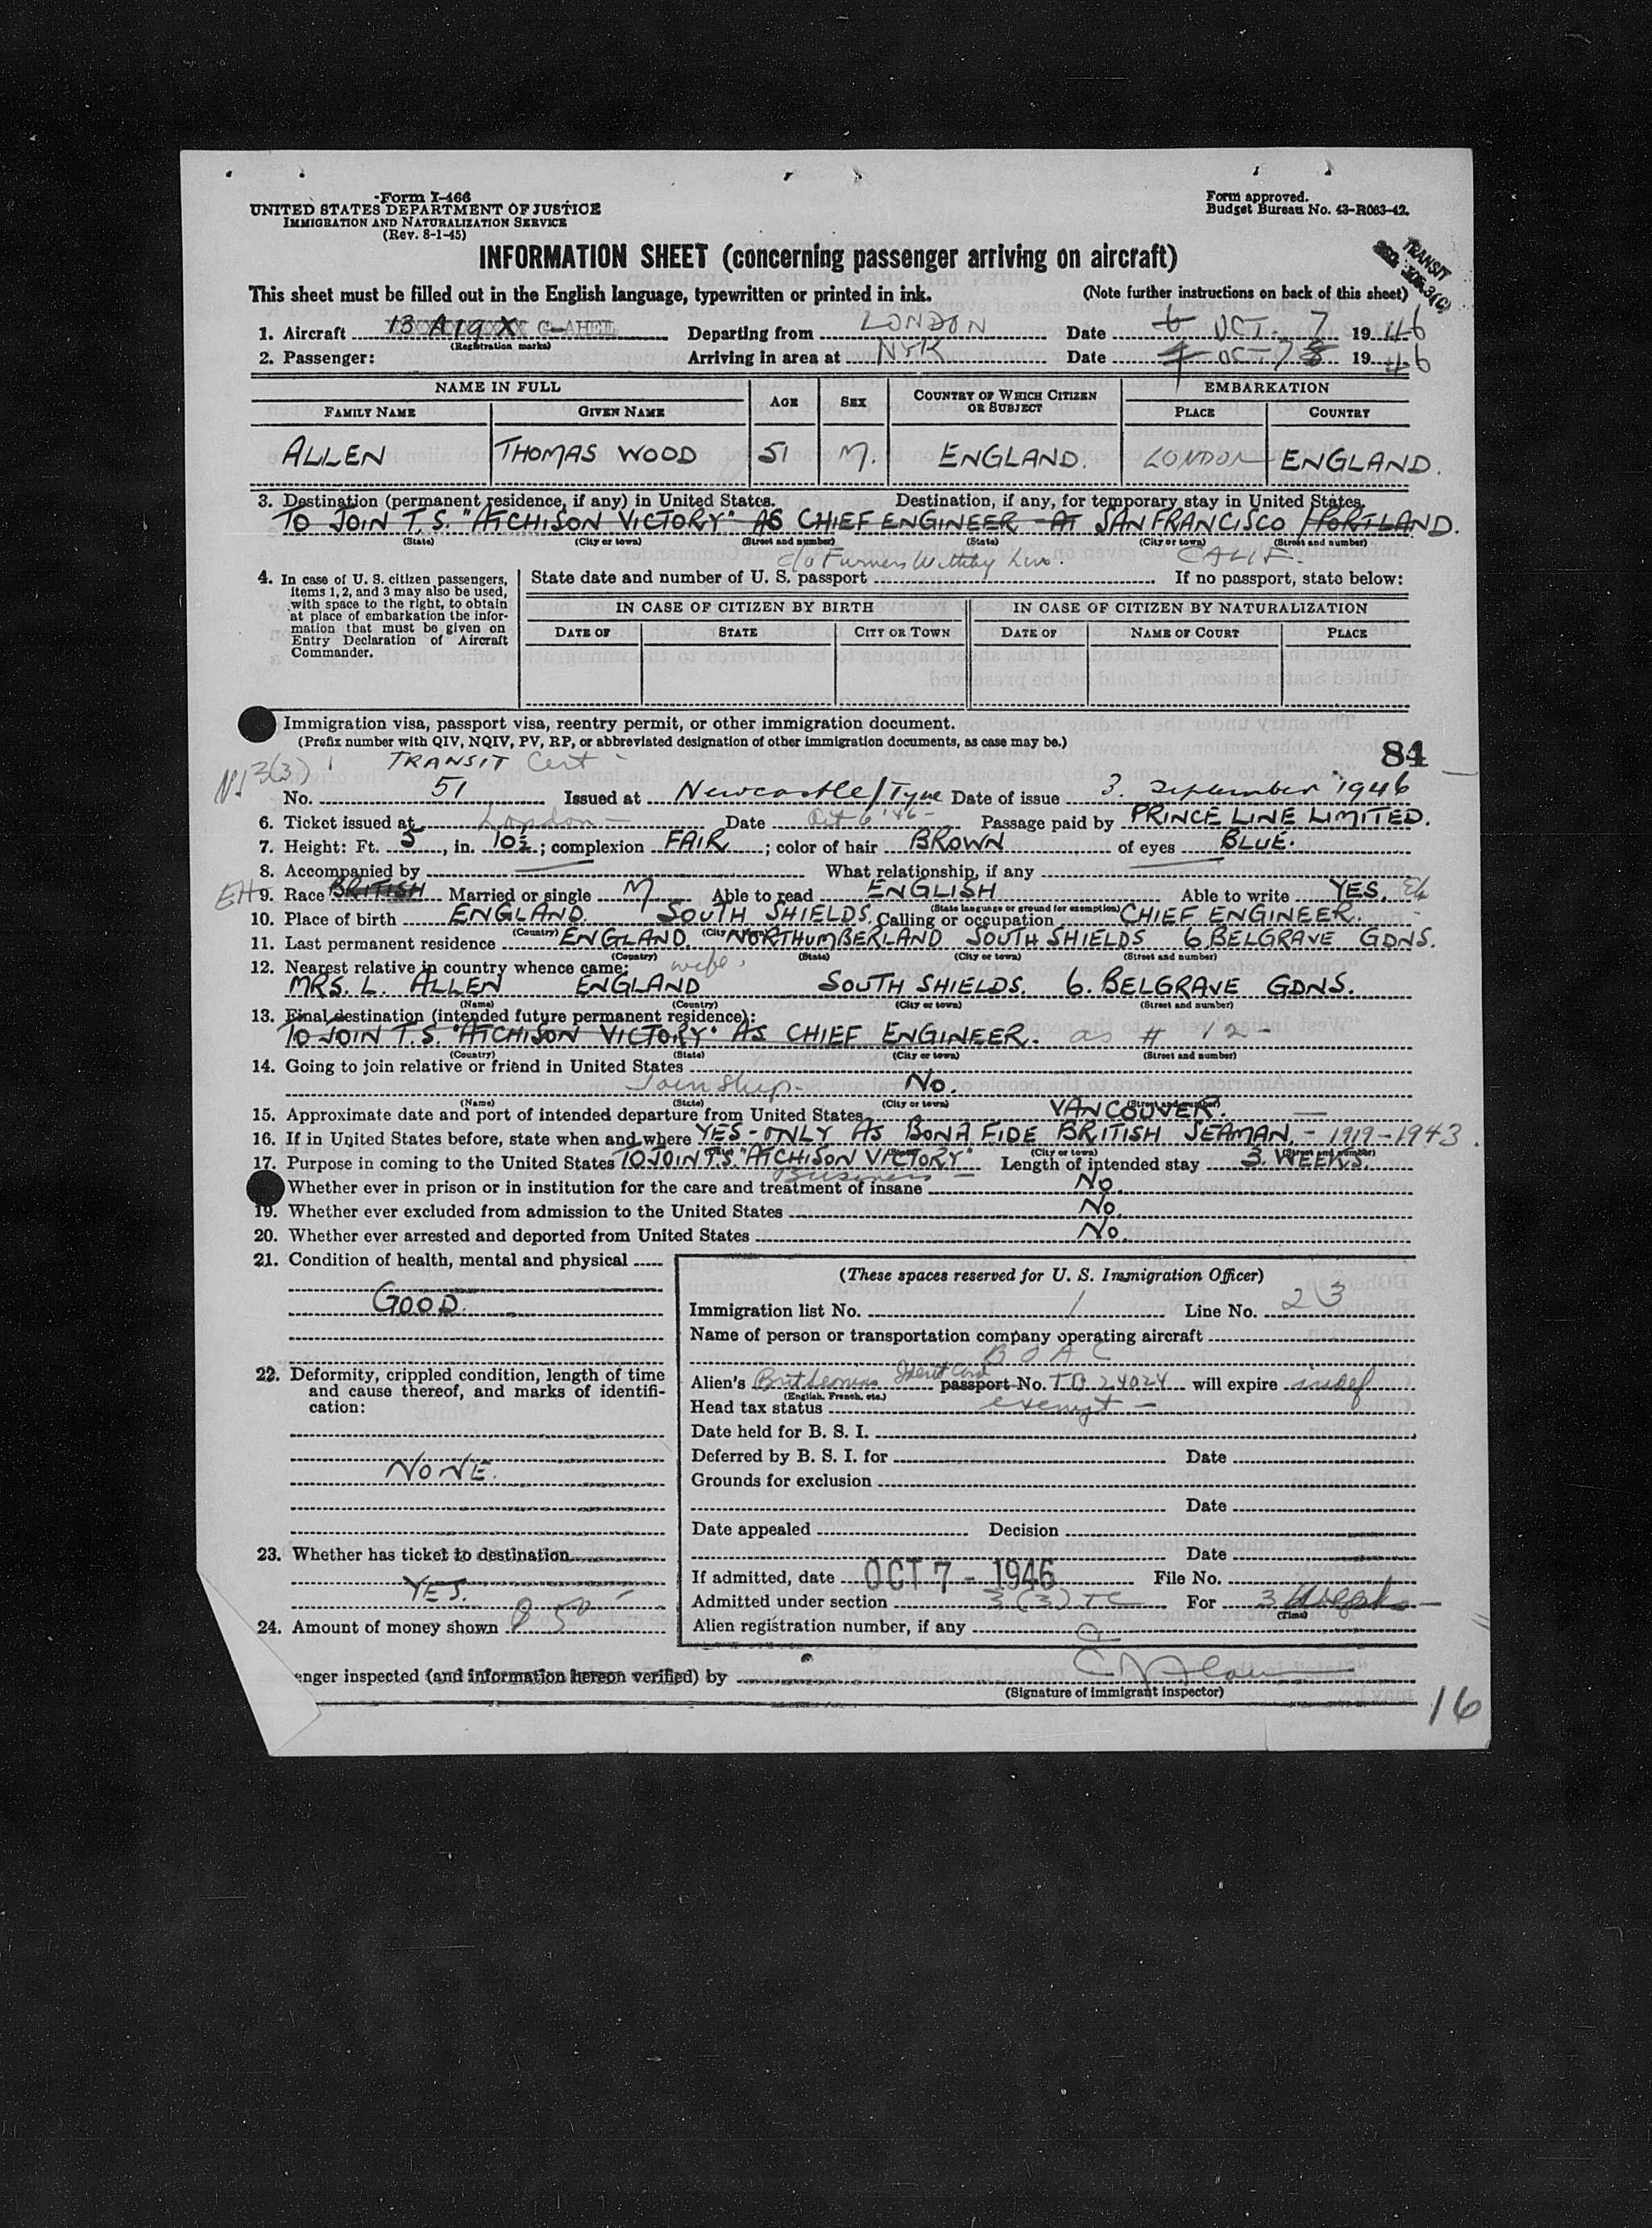 Form I-466
UNITED STATES DEPARTMENT OF JUSTICE
IMMIGRATION AND NATURALIZATION SERVICE
(Rev. 8-1-45)
Form approved.
Budget Bureau No. 43-R063-42.
INFORMATION SHEET (concerning passenger arriving on aircraft)
TRANSIT
This sheet must be filled out in the English language, typewritten or printed in ink. (Note further instructions on back of this sheet)
1. Aircraft G-AHEL Departing from LONDON Date 6 OCT. 7 1946
(Registration marks)
2. Passenger: Arriving in area at NYK Date OCT 7 1946
NAME IN FULL AGE SEX COUNTRY OF WHICH CITIZEN OR SUBJECT EMBARKATION
FAMILY NAME GIVEN NAME PLACE COUNTRY
ALLEN THOMAS WOOD 51 M. ENGLAND. LONDON ENGLAND.
3. Destination (permanent residence, if any) in United States. Destination, if any, for temporary stay in United States.
TO JOIN T.S. "ATCHISON VICTORY" AS CHIEF ENGINEER AT SAN FRANCISCO / PORTLAND.
(State) (City or town) (Street and number) (State) (City or town) (Street and number)
c/o Furness Withby CALIF.
4. In case of U. S. citizen passengers, items 1, 2, and 3 may also be used, with space to the right, to obtain at place of embarkation the information that must be given on Entry Declaration of Aircraft Commander.
State date and number of U. S. passport If no passport, state below:
IN CASE OF CITIZEN BY BIRTH IN CASE OF CITIZEN BY NATURALIZATION
DATE OF STATE CITY OR TOWN DATE OF NAME OF COURT PLACE
Immigration visa, passport visa, reentry permit, or other immigration document.
(Prefix number with QIV, NQIV, PV, RP, or abbreviated designation of other immigration documents, as case may be.)
84
3(3) TRANSIT Cert
No. 51 Issued at Newcastle/Tyne Date of issue 3. September 1946
6. Ticket issued at London Date Oct 6 '46 Passage paid by PRINCE LINE LIMITED.
7. Height: Ft. 5, in. 10½; complexion FAIR; color of hair BROWN of eyes BLUE.
8. Accompanied by What relationship, if any
EH 9. Race BRITISH Married or single M Able to read ENGLISH Able to write YES.
(State language or ground for exemption)
10. Place of birth ENGLAND. SOUTH SHIELDS. Calling or occupation CHIEF ENGINEER.
(Country)
11. Last permanent residence ENGLAND. NORTHUMBERLAND SOUTH SHIELDS 6 BELGRAVE GDNS.
(Country) (State) (City or town) (Street and number)
12. Nearest relative in country whence came: wife
MRS. L. ALLEN ENGLAND SOUTH SHIELDS. 6. BELGRAVE GDNS.
(Name) (Country) (City or town) (Street and number)
13. Final destination (intended future permanent residence):
TO JOIN T.S. "ATCHISON VICTORY" AS CHIEF ENGINEER. as # 12 -
(Country) (State) (City or town) (Street and number)
14. Going to join relative or friend in United States
Join Ship - No.
(Name) (State) (City or town) (Street and number)
15. Approximate date and port of intended departure from United States VANCOUVER.
16. If in United States before, state when and where YES - ONLY AS BONA FIDE BRITISH SEAMAN. - 1919-1943.
(City or town) (Street and number)
17. Purpose in coming to the United States TO JOIN T.S. "ATCHISON VICTORY" Length of intended stay 3. WEEKS.
Business
Whether ever in prison or in institution for the care and treatment of insane No.
19. Whether ever excluded from admission to the United States No.
20. Whether ever arrested and deported from United States No.
21. Condition of health, mental and physical
GOOD.
22. Deformity, crippled condition, length of time and cause thereof, and marks of identification:
NONE.
23. Whether has ticket to destination
YES.
24. Amount of money shown 50
(These spaces reserved for U. S. Immigration Officer)
Immigration list No. 1 Line No. 23
Name of person or transportation company operating aircraft
BOAC
Alien's Brit Ident Card passport No. 24024 will expire indef
(English, French, etc.)
Head tax status exempt -
Date held for B. S. I.
Deferred by B. S. I. for Date
Grounds for exclusion
Date
Date appealed Decision
Date
If admitted, date OCT 7 - 1946 File No.
Admitted under section 3(3) TC For 3 Weeks
(Time)
Alien registration number, if any
enger inspected (and information hereon verified) by
(Signature of immigrant inspector)
16